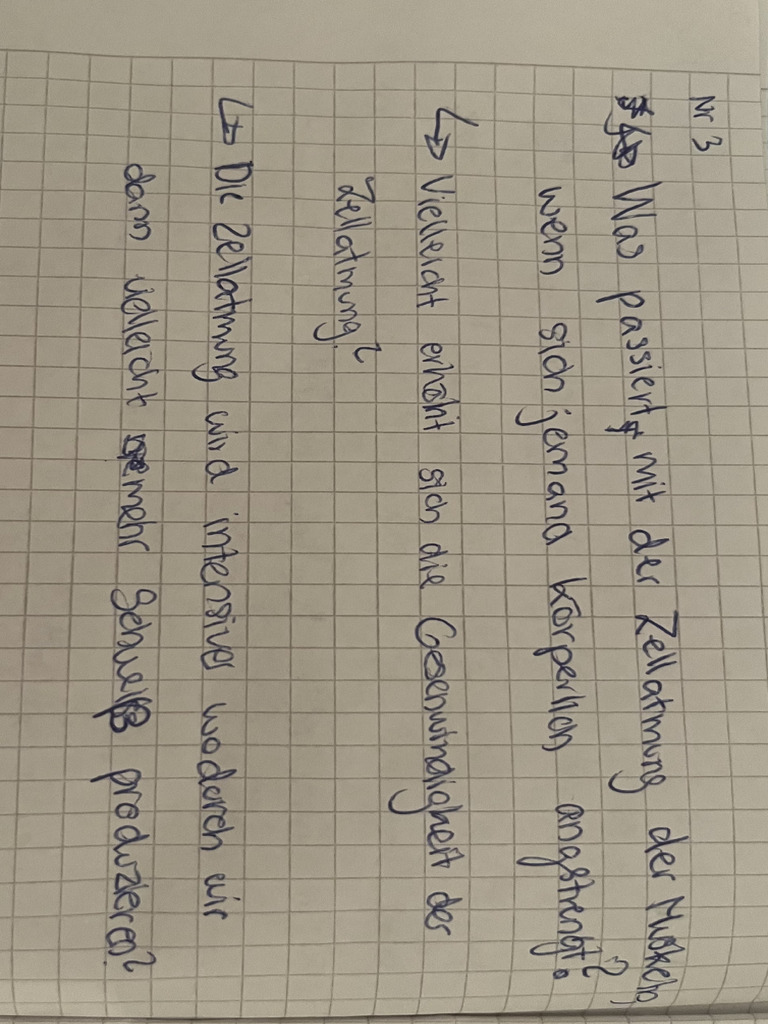 Nr 3
Was passiert mit der Zellatmung der Muskeln,
wenn sich jemand körperlich angstrengt?
↳ Vielleicht erhöht sich die Geschwindigkeit der
Zellatmung?
↳ Die Zellatmung wird intensiver wodurch wir
dann vielleicht mehr Schweiß produzieren?